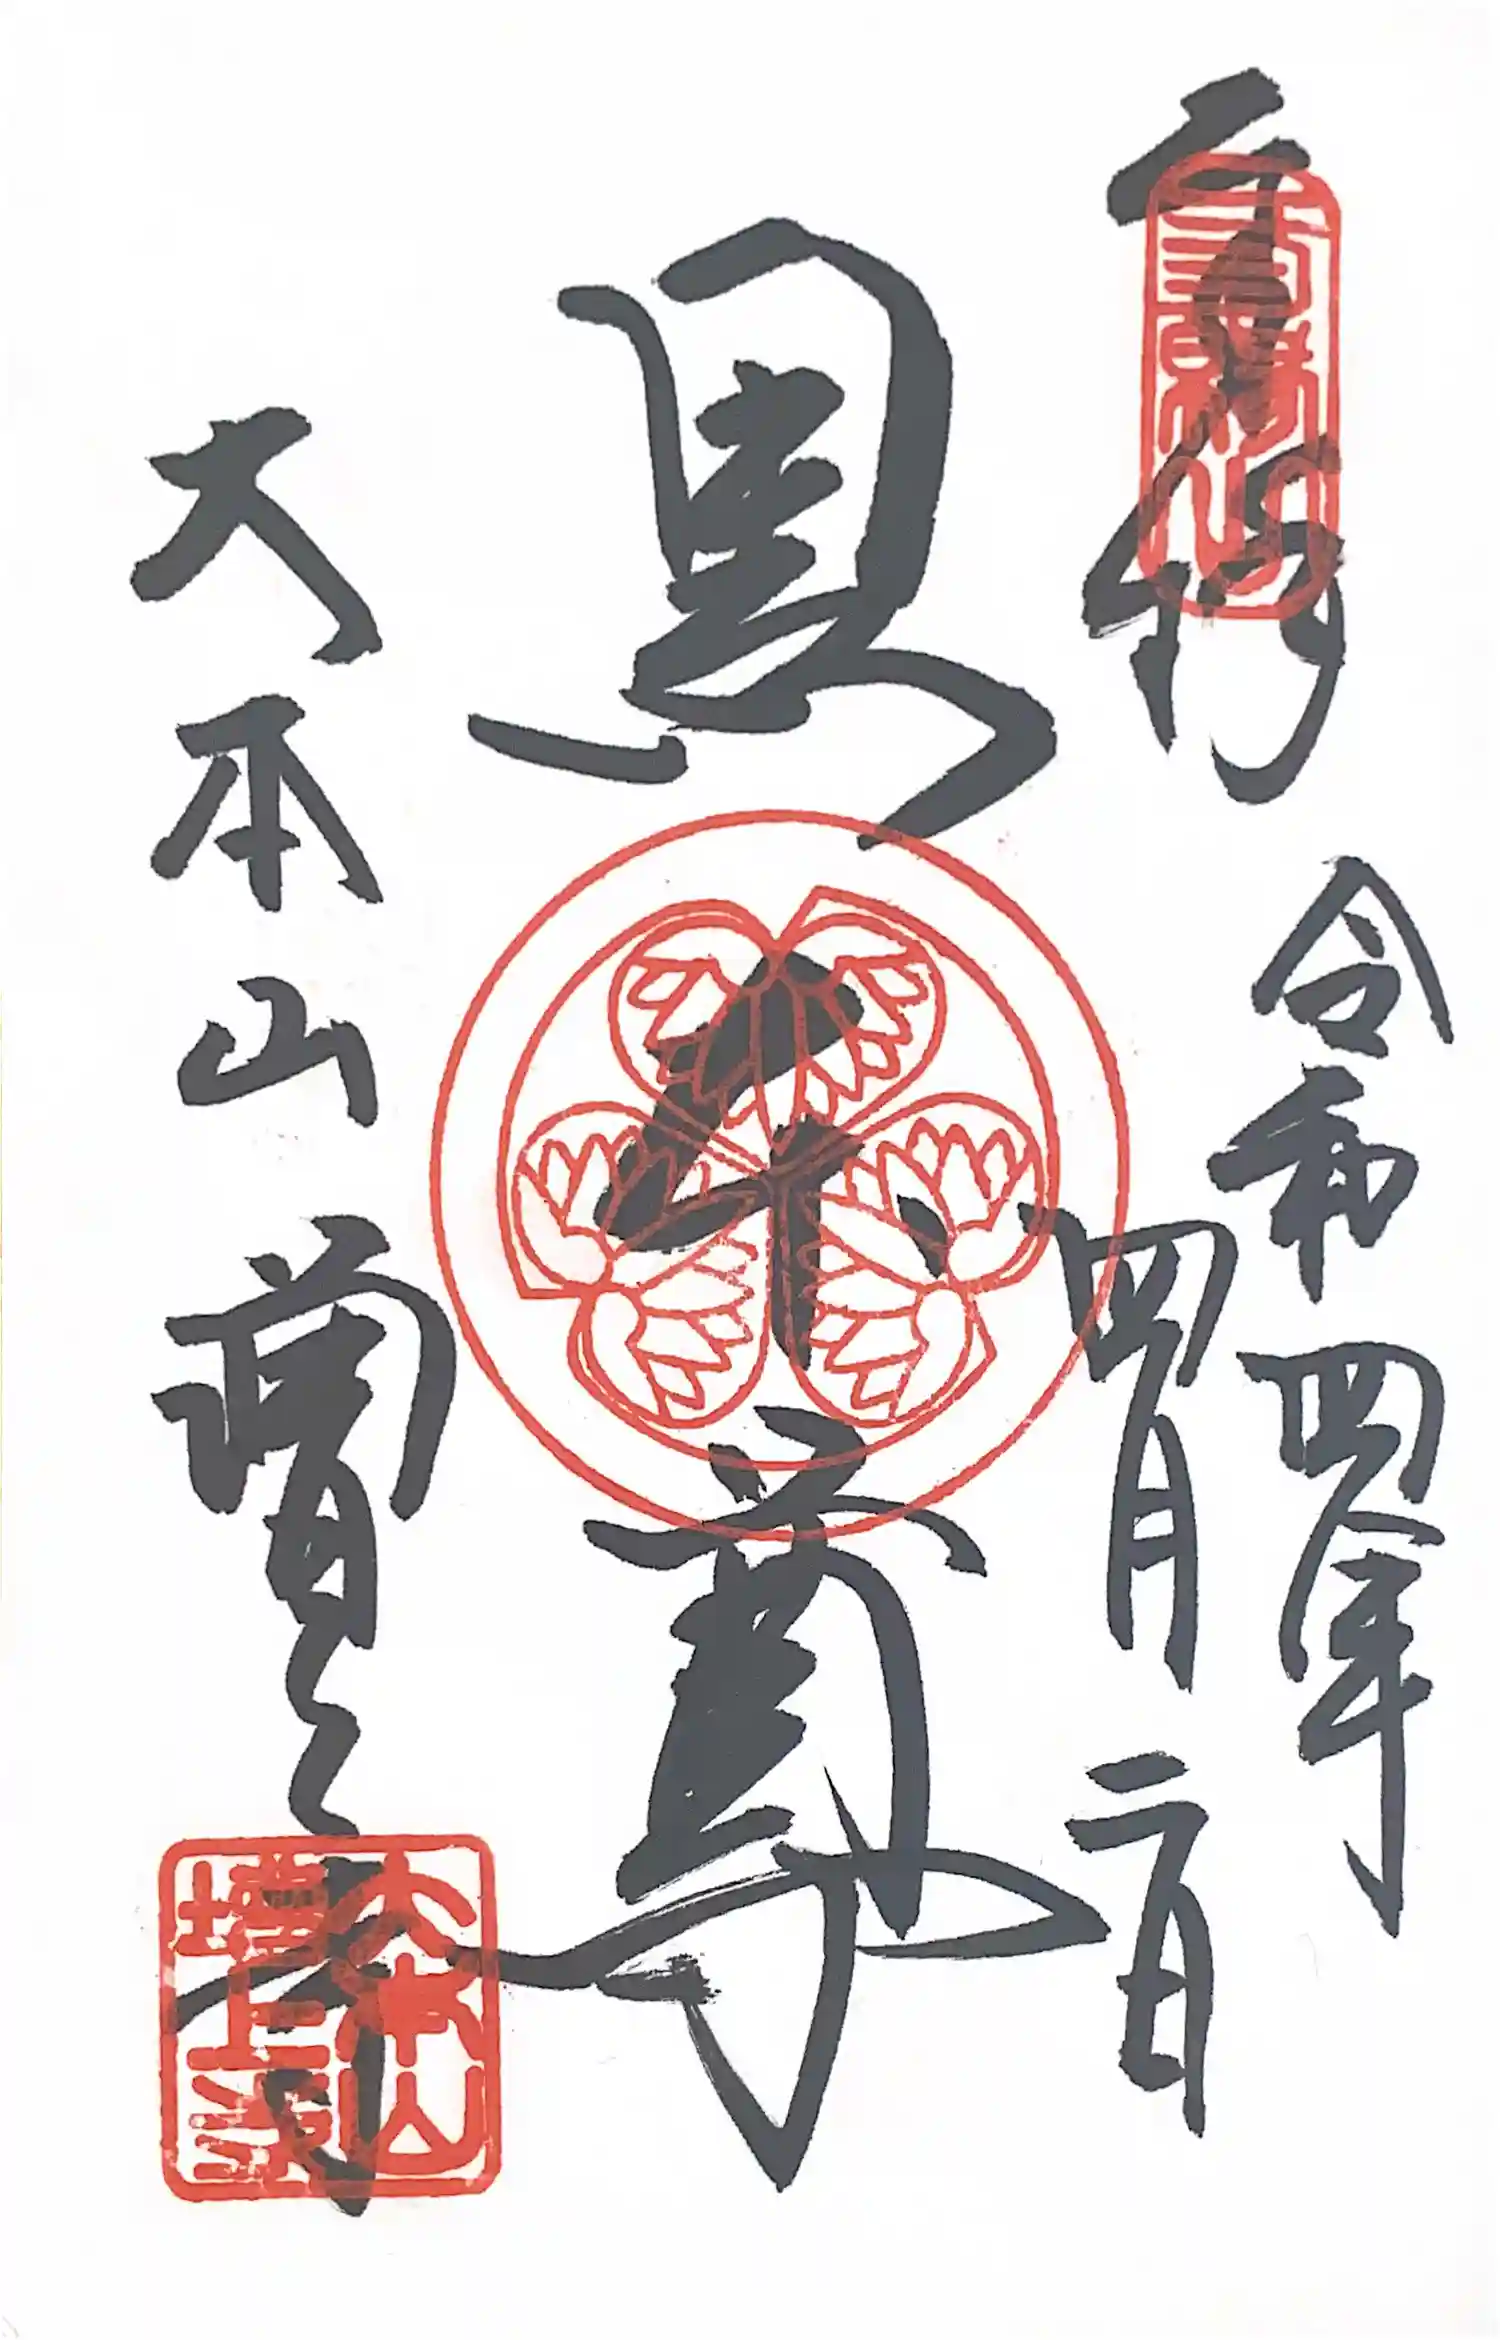 奉拝
令和四年
四月二日
黒本尊
大本山増上寺
大本山
増上寺